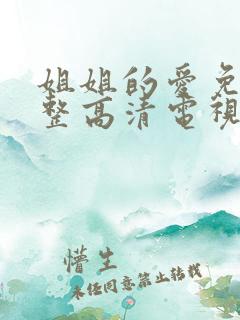 姐姐的愛免
整高清電視
懵生
未经同意禁止转载